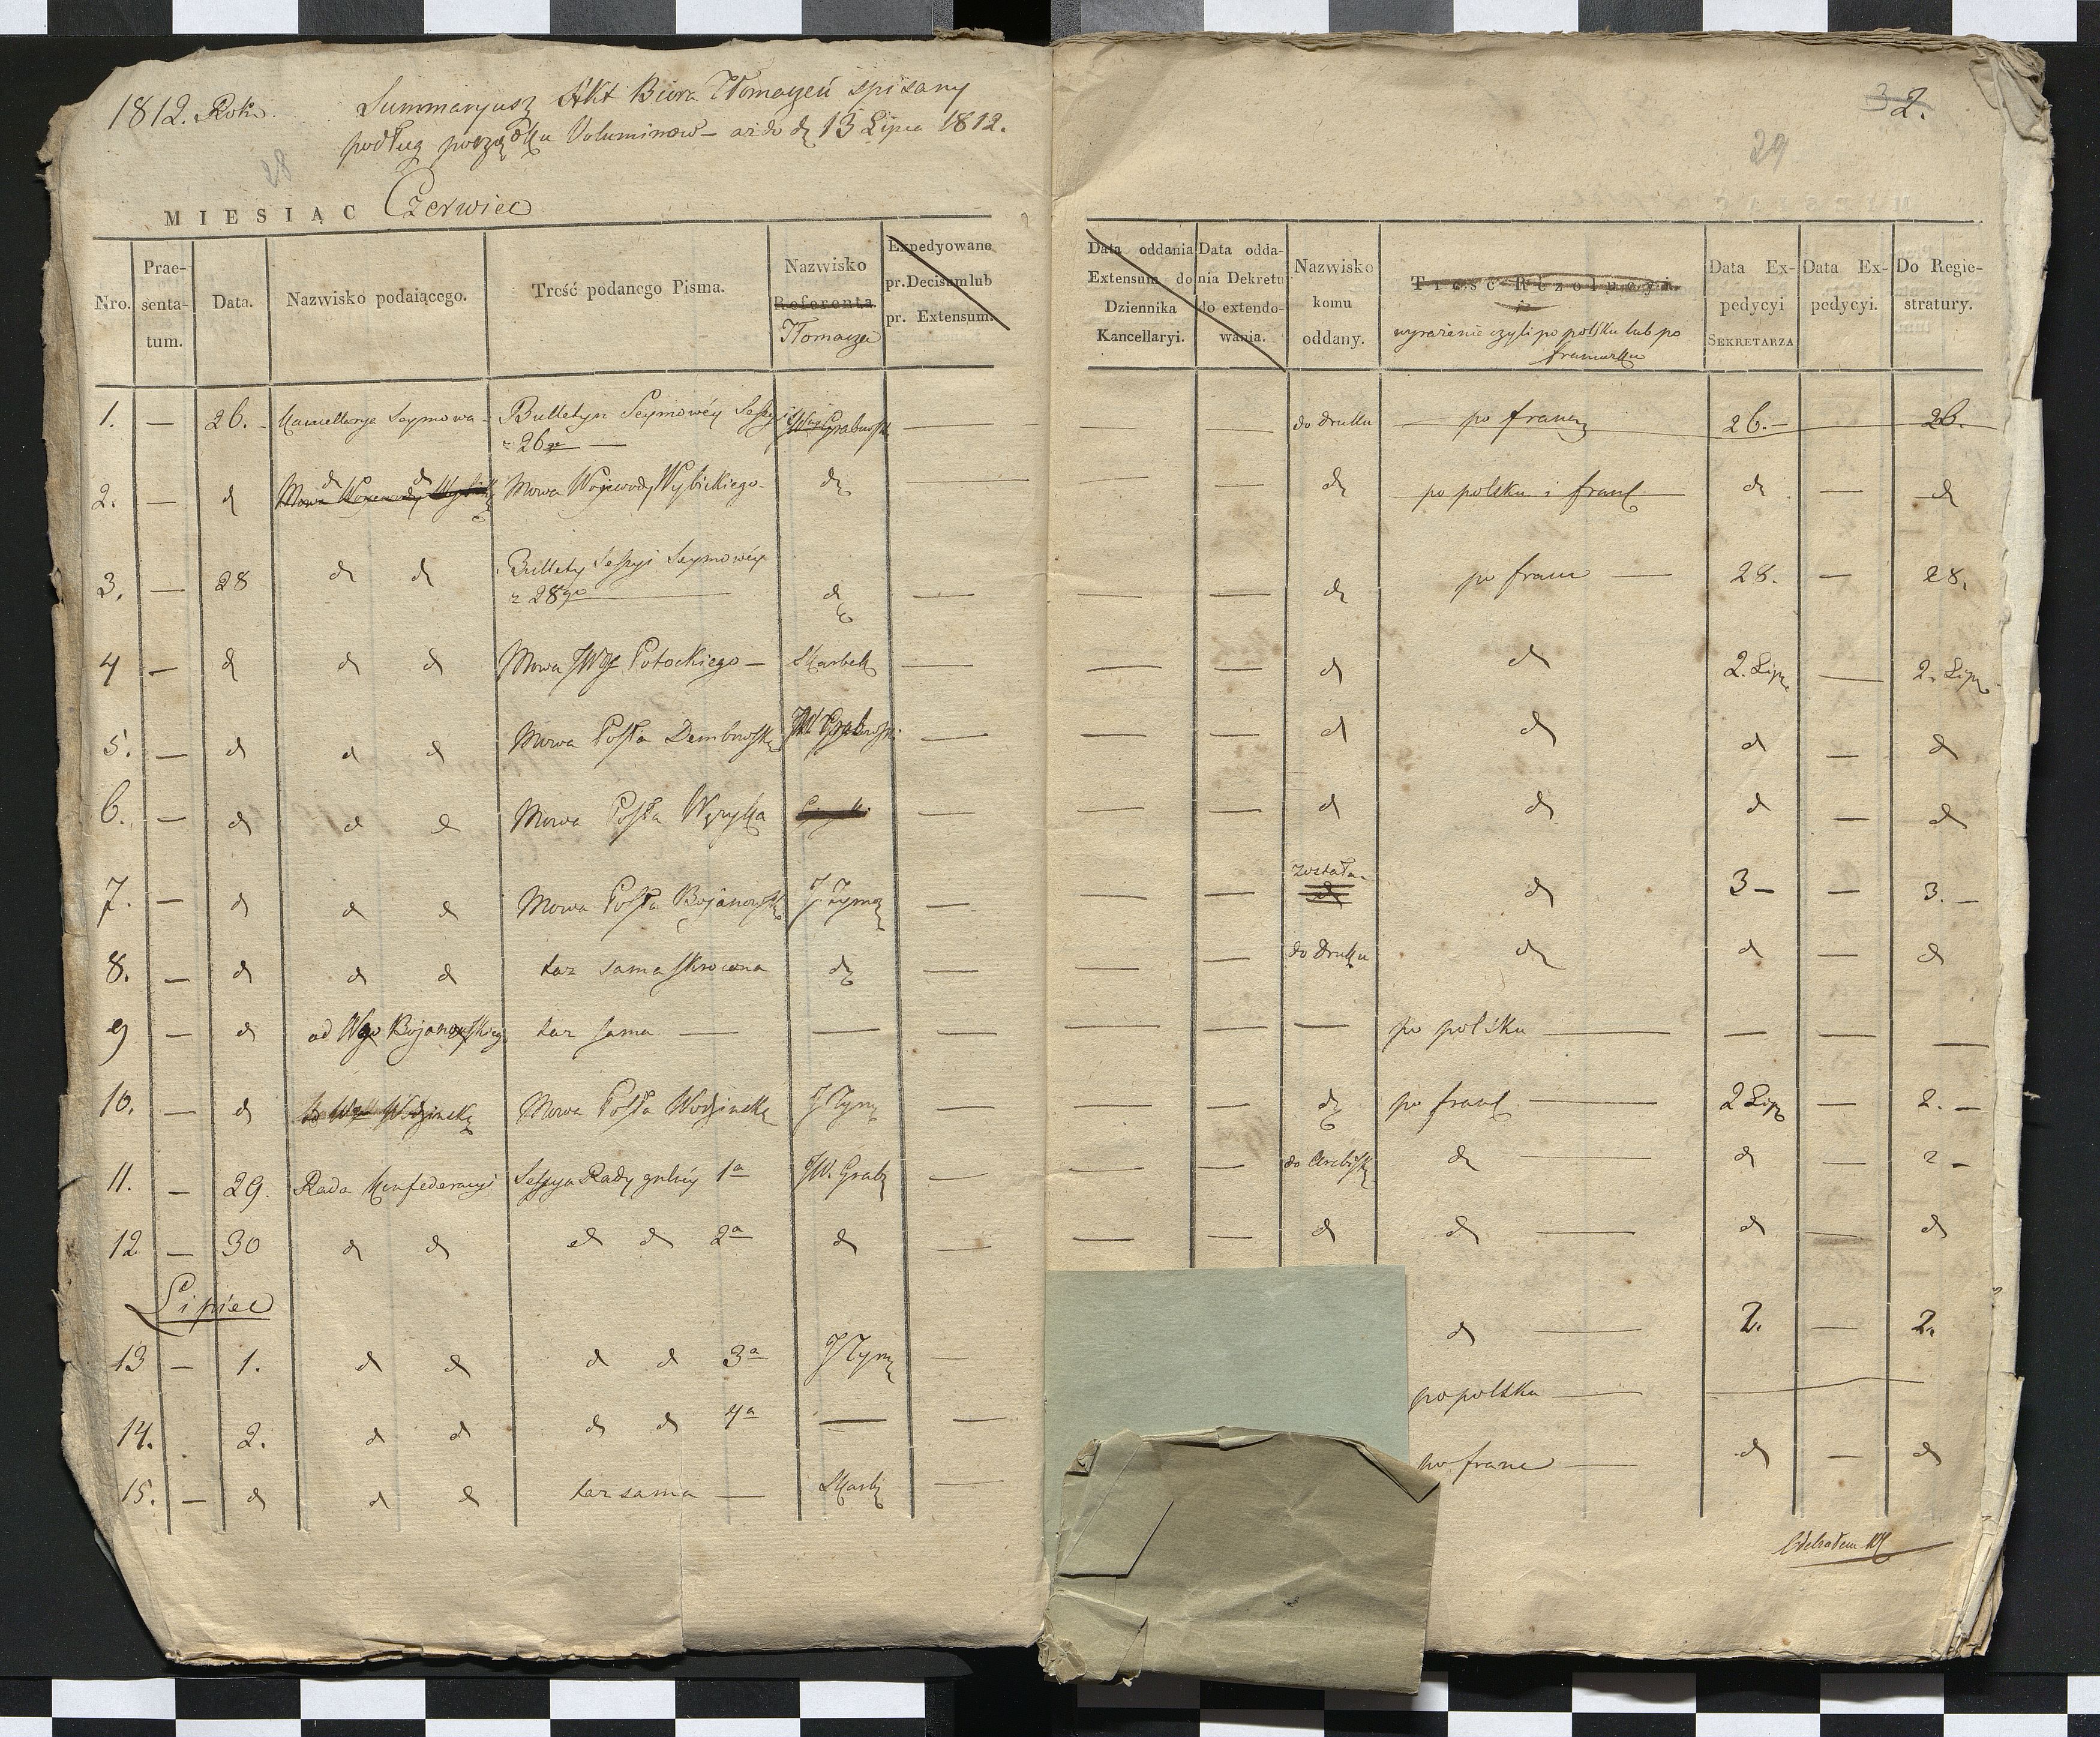 1812. Roku. Summaryusz Akt Biura Tłomaczeń spisany
podług porządku Voluminow – aż do d. 13 Lipca 1812.
28
MIESIĄC Czerwiec
Nro. Praesentatum. Data. Nazwisko podaiącego. Treść podanego Pisma. Nazwisko Referenta Tłomacza Expedyowane pr. Decisum lub pr. Extensum.
1. — 26. Kancellarya Seymowa – Bulletyn Seymowéy Sessyi JW Grabowsk —
z 26go —
2. — d Mowa Wojewody Wybickiego d —
3. — 28 d d Bullety Sessyi Seymowéy d —
z 28go
4 — d d d Mowa JWgo Potockiego — Skarbek —
5. — d d d Mowa Posła Dembowsk JW Grabowski —
6. — d d d Mowa Posła Wężyka —
7. — d d d Mowa Posła Bojanowsk —
8. — d d d taż sama skrocona d —
9 — d od Wgo Bojanowskiego taż sama — — —
10. — d Mowa Posła Wodzinsk —
11. — 29. Rada Konfederacyi Sessya Rady gnlnéy 1a JW. Grab —
12 — 30 d d d d 2a d —
Lipiec
13 — 1. d d d d 3a —
14. 2. d d d d 4a — —
15. — d d d taż sama — Skarb —
3 2.
29
Data oddania Extensum do Dziennika Kancellaryi. Data oddania Dekretu do extendowania. Nazwisko komu oddany. Treść Rezolucyi. Data Expedycyi SEKRETARZA Data Expedycyi. Do Registratury.
wyrażenie czyli po polsku lub po
francuzku
— — do druku — po franc 26. — 26.
— — d — po polsku i franc — d — d
— — d po franc — 28. — 28.
— — d d 2. Lipc — 2. Lipc
— — d d d — d
— — d d d — d
— — została d 3 — — 3. —
— — do Druku d d — d
— — — po polsku — — — —
— — d po franc — 2 Lipc — 2. —
— — d — d — 2 —
— — d d — d — d
d — 2. — 2.
po polsku — —
po franc — d — d